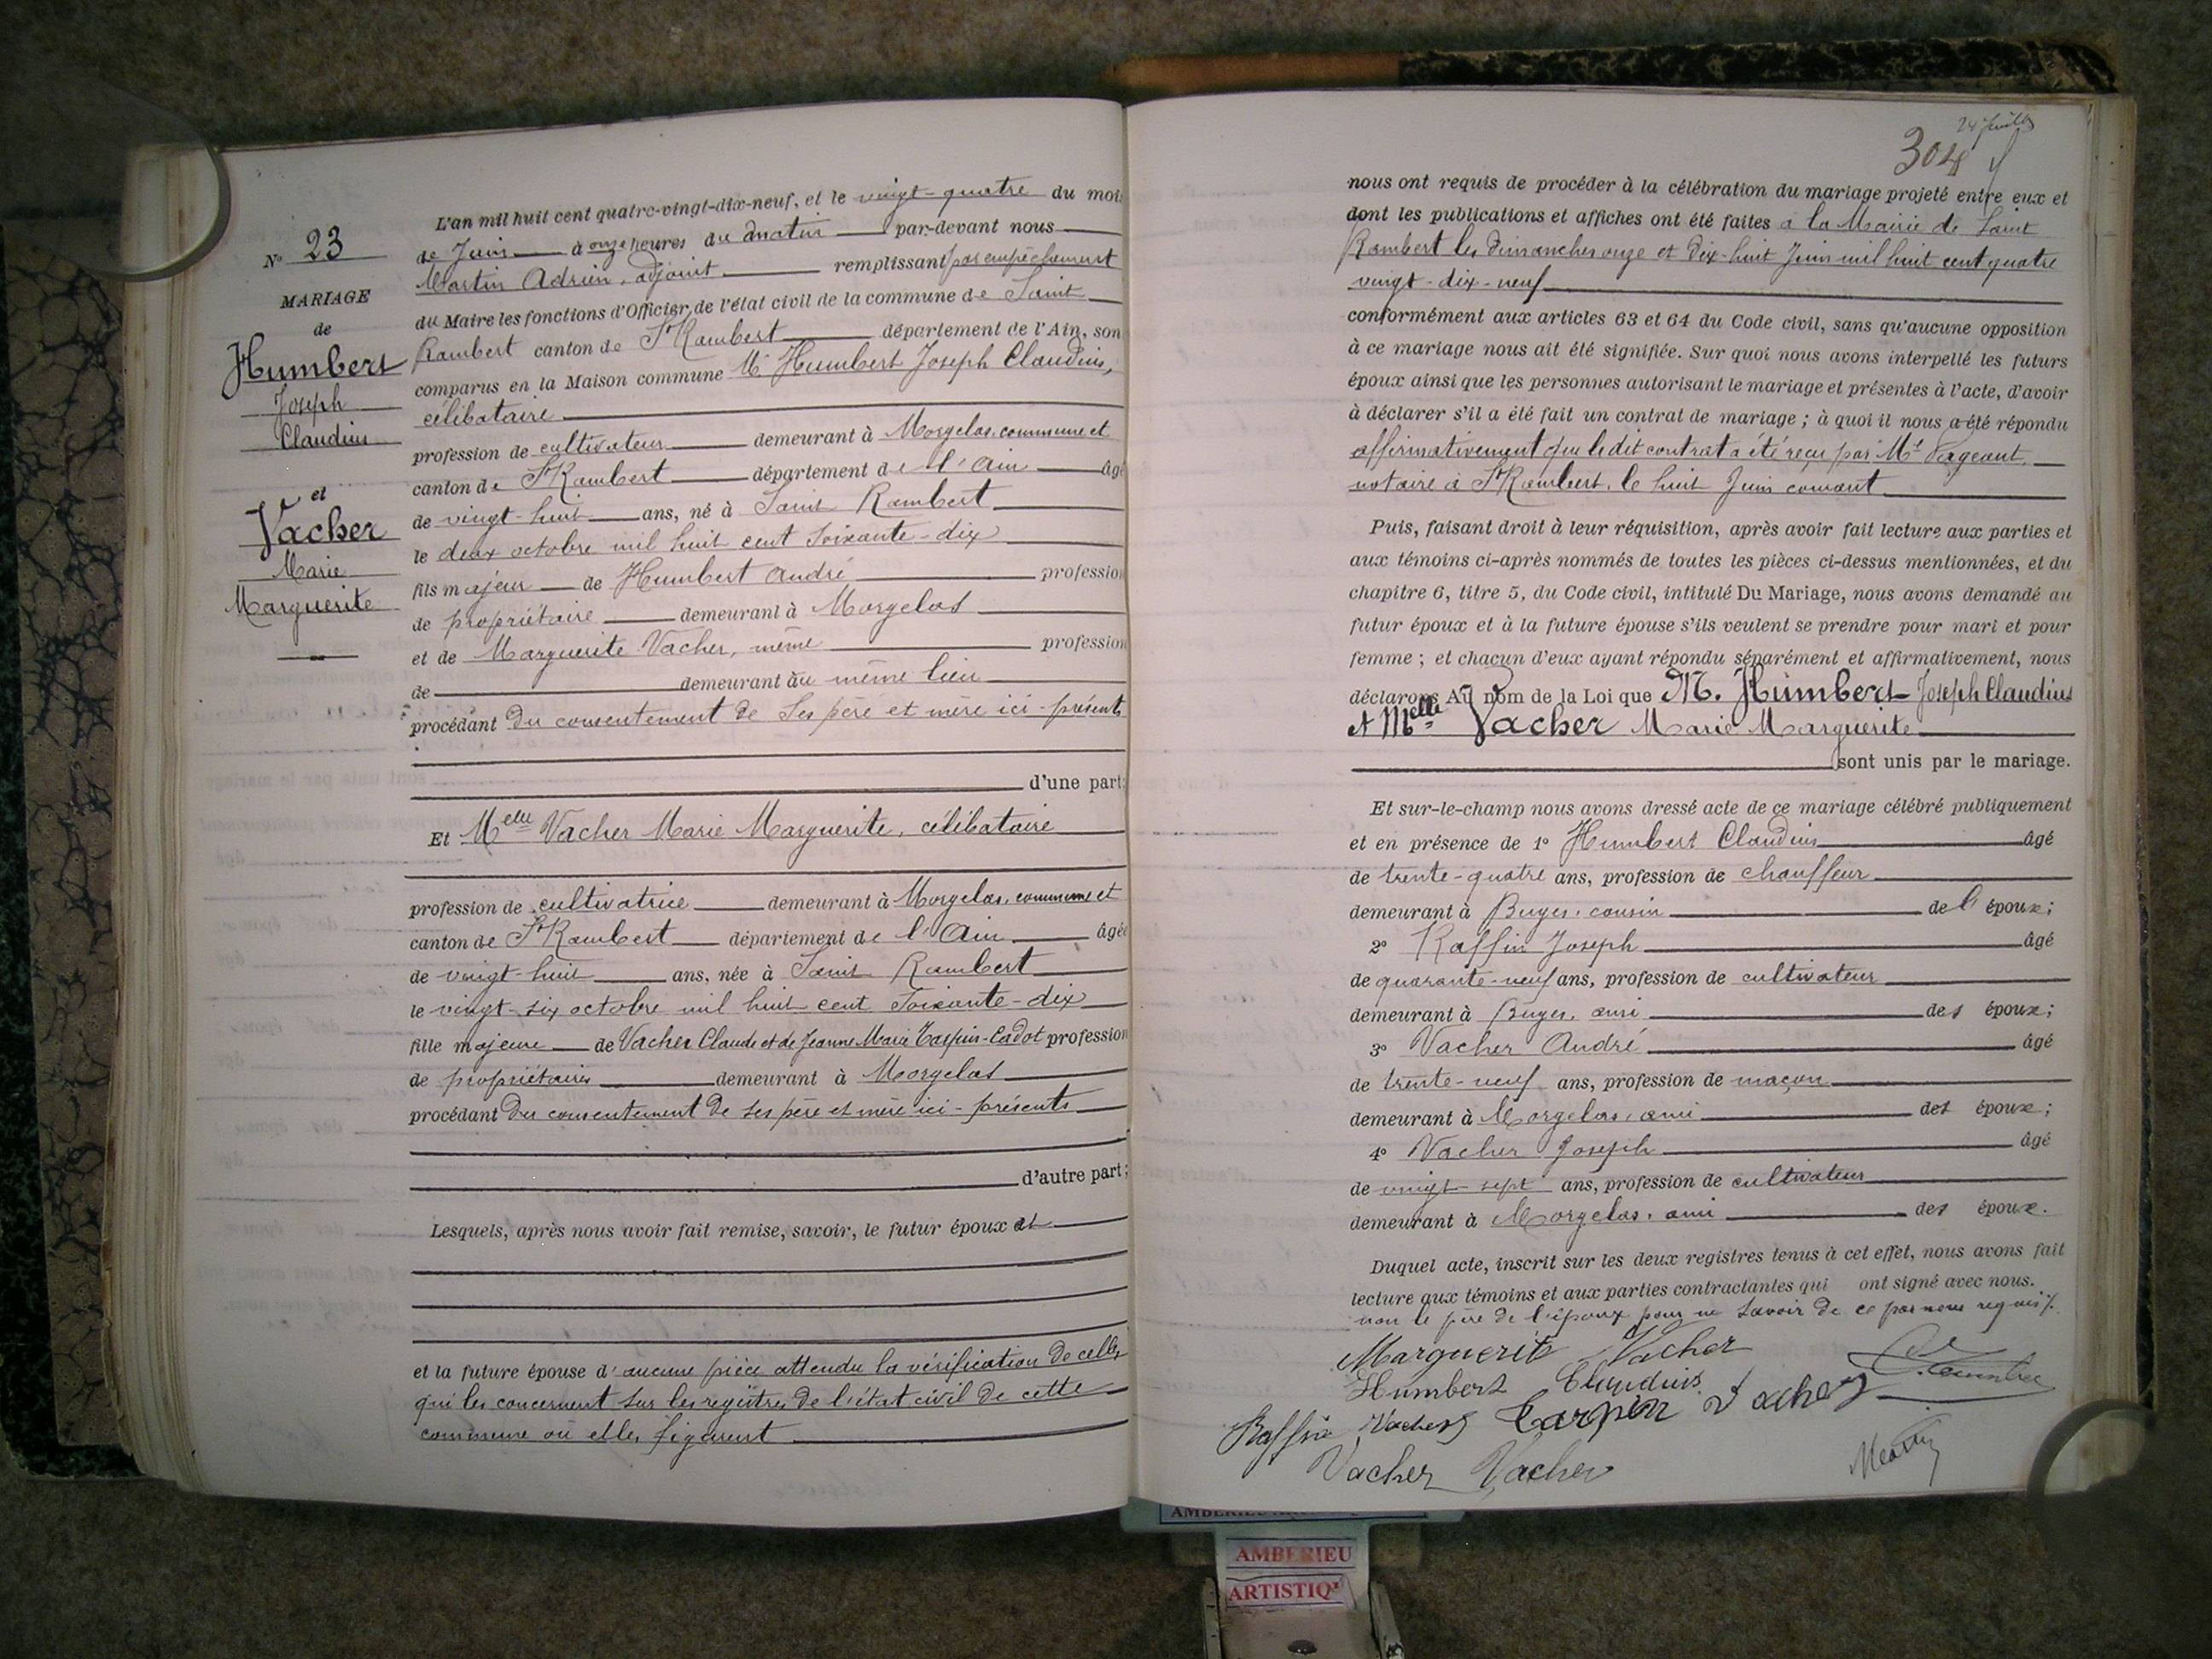 N° 23
MARIAGE
de
Humbert
Joseph
Claudius
et
Vacher
Marie
Marguerite
L'an mil huit cent quatre-vingt-dix-neuf, et le vingt-quatre du mois
de Juin à onze heures du matin par-devant nous
Martin Adrien, adjoint remplissant par empêchement
du Maire les fonctions d'Officier de l'état civil de la commune de Saint
Rambert canton de St Rambert département de l'Ain, son
comparus en la Maison commune Mr Humbert Joseph Claudius,
célibataire
profession de cultivateur demeurant à Morgelas, commune et
canton de St Rambert département de l'Ain âgé
de vingt-huit ans, né à Saint Rambert
le deux octobre mil huit cent soixante-dix
fils majeur de Humbert André profession
de propriétaire demeurant à Morgelas
et de Marguerite Vacher, même profession
de demeurant au même lieu
procédant du consentement de ses père et mère ici-présents
d'une part;
Et Melle Vacher Marie Marguerite, célibataire
profession de cultivatrice demeurant à Morgelas, commune et
canton de St Rambert département de l'Ain âgée
de vingt-huit ans, née à Saint Rambert
le vingt-six octobre mil huit cent soixante-dix
fille majeure de Vacher Claude et de Jeanne Marie profession
de propriétaires demeurant à Morgelas
procédant du consentement de ses père et mère ici-présents
d'autre part;
Lesquels, après nous avoir fait remise, savoir, le futur époux et
et la future épouse d'aucune pièce attendu la vérification de celles
qui les concernent sur les registres de l'état civil de cette
commune où elles figurent
304
nous ont requis de procéder à la célébration du mariage projeté entre eux et
dont les publications et affiches ont été faites à la Mairie de Saint
Rambert les dimanches onze et dix-huit Juin mil huit cent quatre
vingt-dix-neuf
conformément aux articles 63 et 64 du Code civil, sans qu'aucune opposition
à ce mariage nous ait été signifiée. Sur quoi nous avons interpellé les futurs
époux ainsi que les personnes autorisant le mariage et présentes à l'acte, d'avoir
à déclarer s'il a été fait un contrat de mariage; à quoi il nous a été répondu
affirmativement que ledit contrat a été reçu par Me
notaire à St Rambert, le huit Juin courant
Puis, faisant droit à leur réquisition, après avoir fait lecture aux parties et
aux témoins ci-après nommés de toutes les pièces ci-dessus mentionnées, et du
chapitre 6, titre 5, du Code civil, intitulé Du Mariage, nous avons demandé au
futur époux et à la future épouse s'ils veulent se prendre pour mari et pour
femme; et chacun d'eux ayant répondu séparément et affirmativement, nous
déclarons Au nom de la Loi que M. Humbert Joseph Claudius
et Melle Vacher Marie Marguerite
sont unis par le mariage.
Et sur-le-champ nous avons dressé acte de ce mariage célébré publiquement
et en présence de 1° Humbert Claudius âgé
de trente-quatre ans, profession de chauffeur
demeurant à Buges, cousin de l'époux;
2° Raffin Joseph âgé
de quarante-neuf ans, profession de cultivateur
demeurant à Buges, ami des époux;
3° Vacher André âgé
de trente-neuf ans, profession de maçon
demeurant à Morgelas, ami des époux;
4° Vacher Joseph âgé
de vingt-sept ans, profession de cultivateur
demeurant à Morgelas, ami des époux.
Duquel acte, inscrit sur les deux registres tenus à cet effet, nous avons fait
lecture aux témoins et aux parties contractantes qui ont signé avec nous.
non le père de l'époux pour ne savoir de ce par nous requis
Marguerite Vacher
Humbert Claudius
Raffin Vacher Carpin Vacher
Vacher Vacher
Martin
AMBERIEU
ARTISTIQ